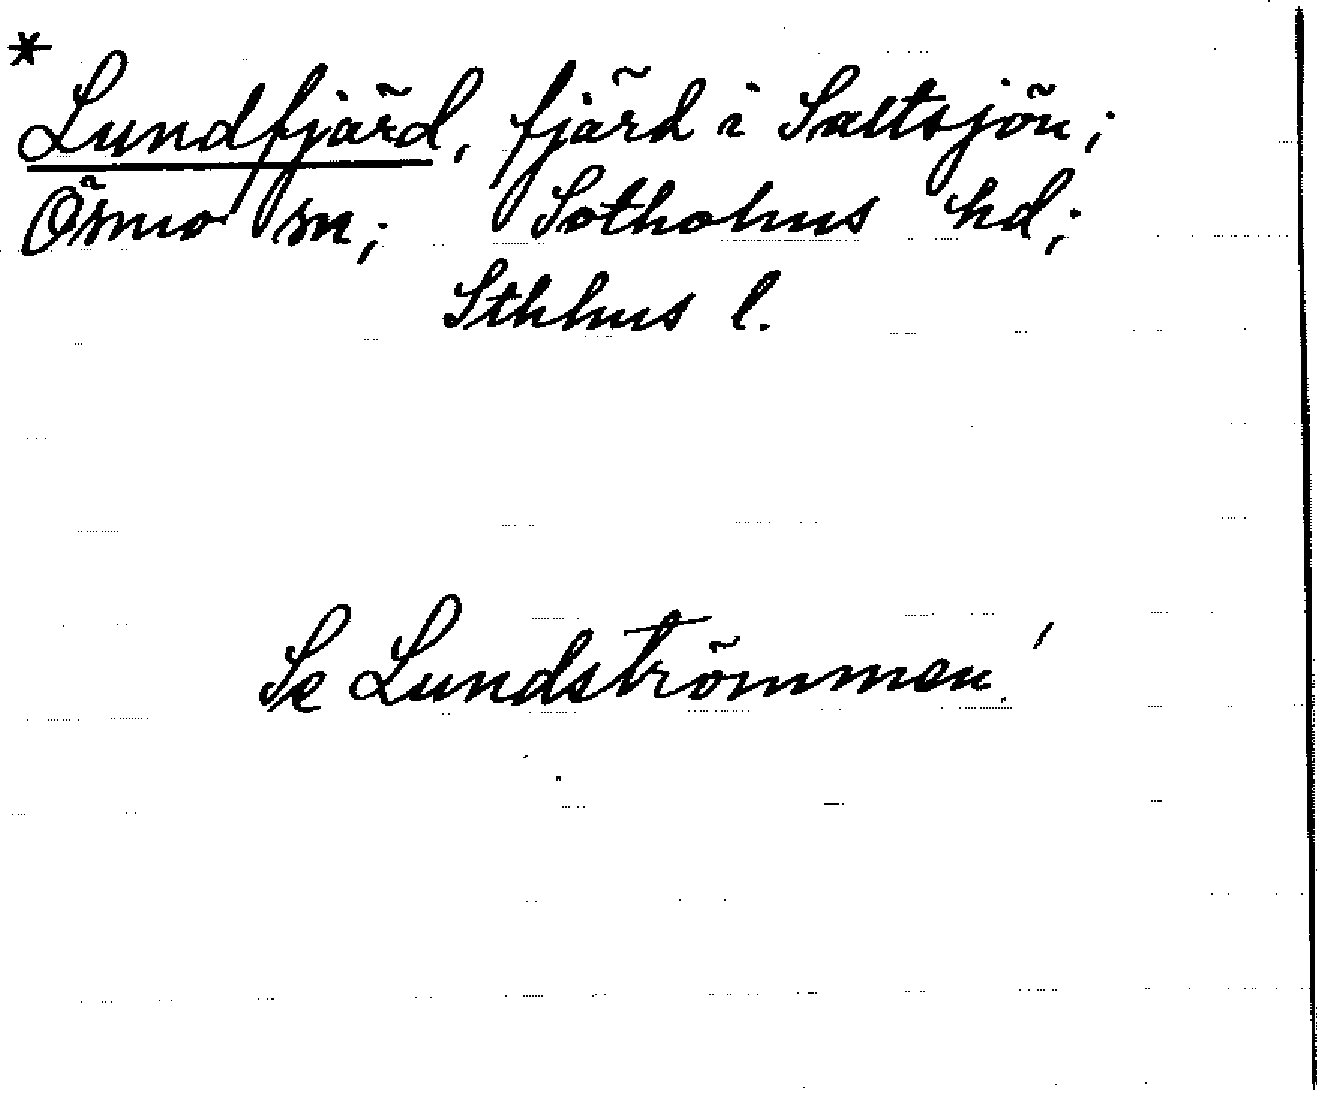 *
Lundfjärd, fjärd i Saltsjön;
Ösmo sn; Sotholms hd;
Sthlms l.
Se Lundströmmen!